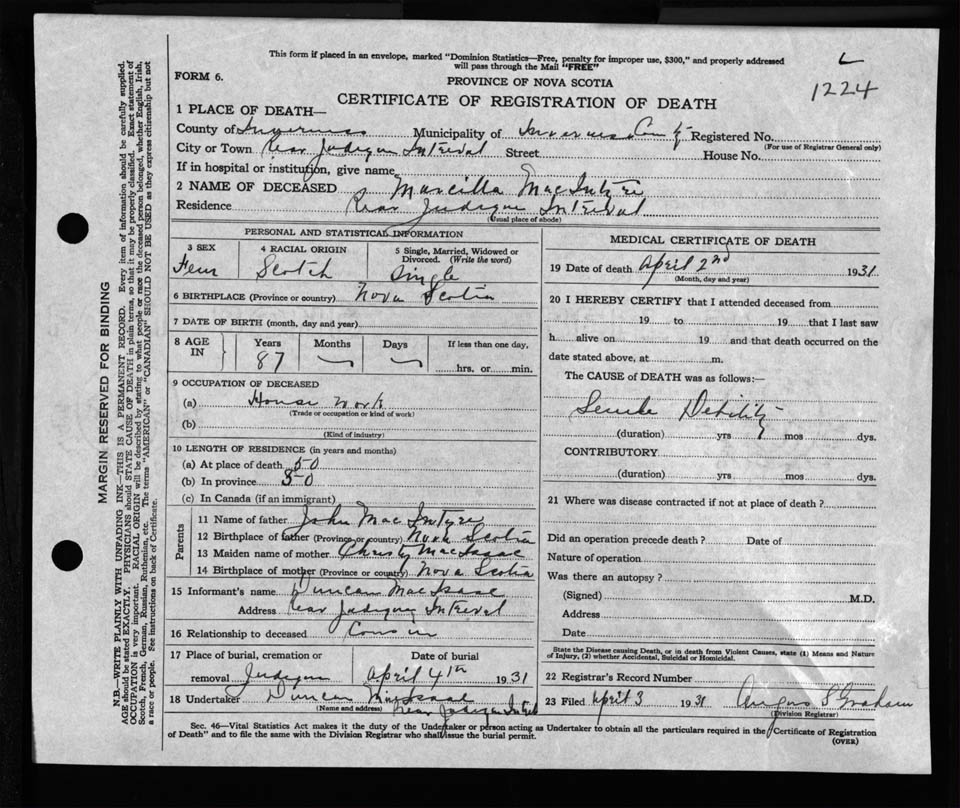 This form if placed in an envelope, marked "Dominion Statistics—Free, penalty for improper use, $300," and properly addressed
will pass through the Mail "FREE"
L
1224
FORM 6.
PROVINCE OF NOVA SCOTIA
CERTIFICATE OF REGISTRATION OF DEATH
1 PLACE OF DEATH—
County of Inverness Municipality of Inverness County Registered No.
(For use of Registrar General only)
City or Town Rear Judique Interval Street House No.
If in hospital or institution, give name
2 NAME OF DECEASED Marcilla MacIntyre
Residence Rear Judique Interval
(Usual place of abode)
PERSONAL AND STATISTICAL INFORMATION
3 SEX
Fem
4 RACIAL ORIGIN
Scotch
5 Single, Married, Widowed or
Divorced. (Write the word)
Single
6 BIRTHPLACE (Province or country) Nova Scotia
7 DATE OF BIRTH (month, day and year)
8 AGE
IN
Years
87
Months
Days
If less than one day,
hrs. or min.
9 OCCUPATION OF DECEASED
(a) House work
(Trade or occupation or kind of work)
(b)
(Kind of industry)
10 LENGTH OF RESIDENCE (in years and months)
(a) At place of death 50
(b) In province
(c) In Canada (if an immigrant)
Parents
11 Name of father John MacIntyre
12 Birthplace of father (Province or country) Nova Scotia
13 Maiden name of mother Christy MacIsaac
14 Birthplace of mother (Province or country) Nova Scotia
15 Informant's name Duncan MacIsaac
Address Rear Judique Interval
16 Relationship to deceased Cousin
17 Place of burial, cremation or
removal Judique
Date of burial
April 4th 1931
18 Undertaker Duncan MacIsaac
(Name and address) Rear Judique Interval
MEDICAL CERTIFICATE OF DEATH
19 Date of death April 2nd 1931
(Month, day and year)
20 I HEREBY CERTIFY that I attended deceased from
19 to 19 that I last saw
h alive on 19 and that death occurred on the
date stated above, at m.
The CAUSE of DEATH was as follows:—
Senile Debility
(duration) yrs mos dys.
CONTRIBUTORY
(duration) yrs. mos. dys.
21 Where was disease contracted if not at place of death?
Did an operation precede death? Date of
Nature of operation
Was there an autopsy?
(Signed) M.D.
Address
Date
State the Disease causing Death, or in death from Violent Causes, state (1) Means and Nature
of Injury, (2) whether Accidental, Suicidal or Homicidal.
22 Registrar's Record Number
23 Filed April 3 1931 Angus S Graham
(Division Registrar)
Sec. 46—Vital Statistics Act makes it the duty of the Undertaker or person acting as Undertaker to obtain all the particulars required in the Certificate of Registration
of Death" and to file the same with the Division Registrar who shall issue the burial permit.
(OVER)
MARGIN RESERVED FOR BINDING
N.B.—WRITE PLAINLY WITH UNFADING INK—THIS IS A PERMANENT RECORD. Every item of information should be carefully supplied.
AGE should be stated EXACTLY. PHYSICIANS should STATE CAUSE OF DEATH in plain terms, so that it may be properly classified. Exact statement of
OCCUPATION is very important. RACIAL ORIGIN will be described by stating to what people or race the deceased person belonged, whether English, Irish,
Scotch, French, German, Russian, Ruthenian, etc. The terms "AMERICAN" or "CANADIAN" SHOULD NOT BE USED as they express citizenship but not
a race or people. See instructions on back of Certificate.